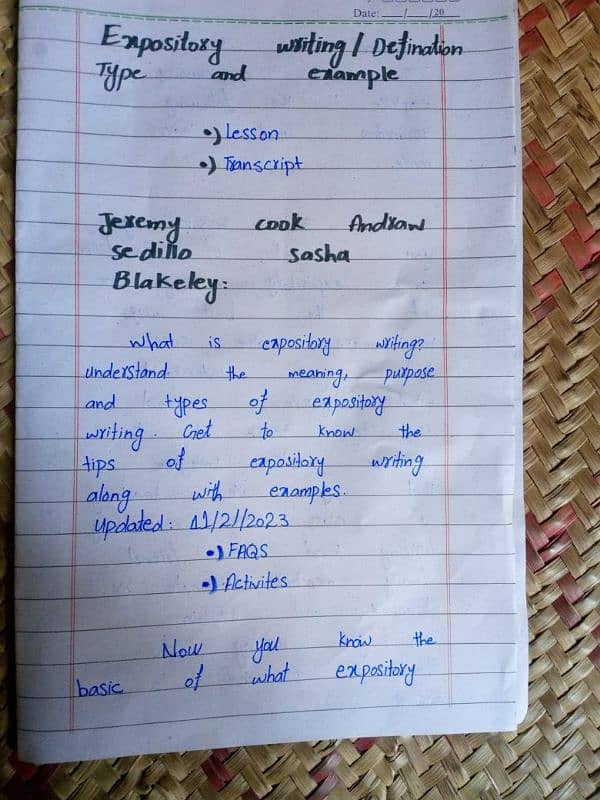 Date: ___/___/20___
Expository writing / Defination
Type and example
•) Lesson
•) Transcript
Jeremy cook Andraw
sedillo sasha
Blakeley:
What is expository writing?
understand the meaning, purpose
and types of expository
writing. Get to know the
tips of expository writing
along with examples.
updated: 11/21/2023
•) FAQS
•) Activites
Now you know the
basic of what expository